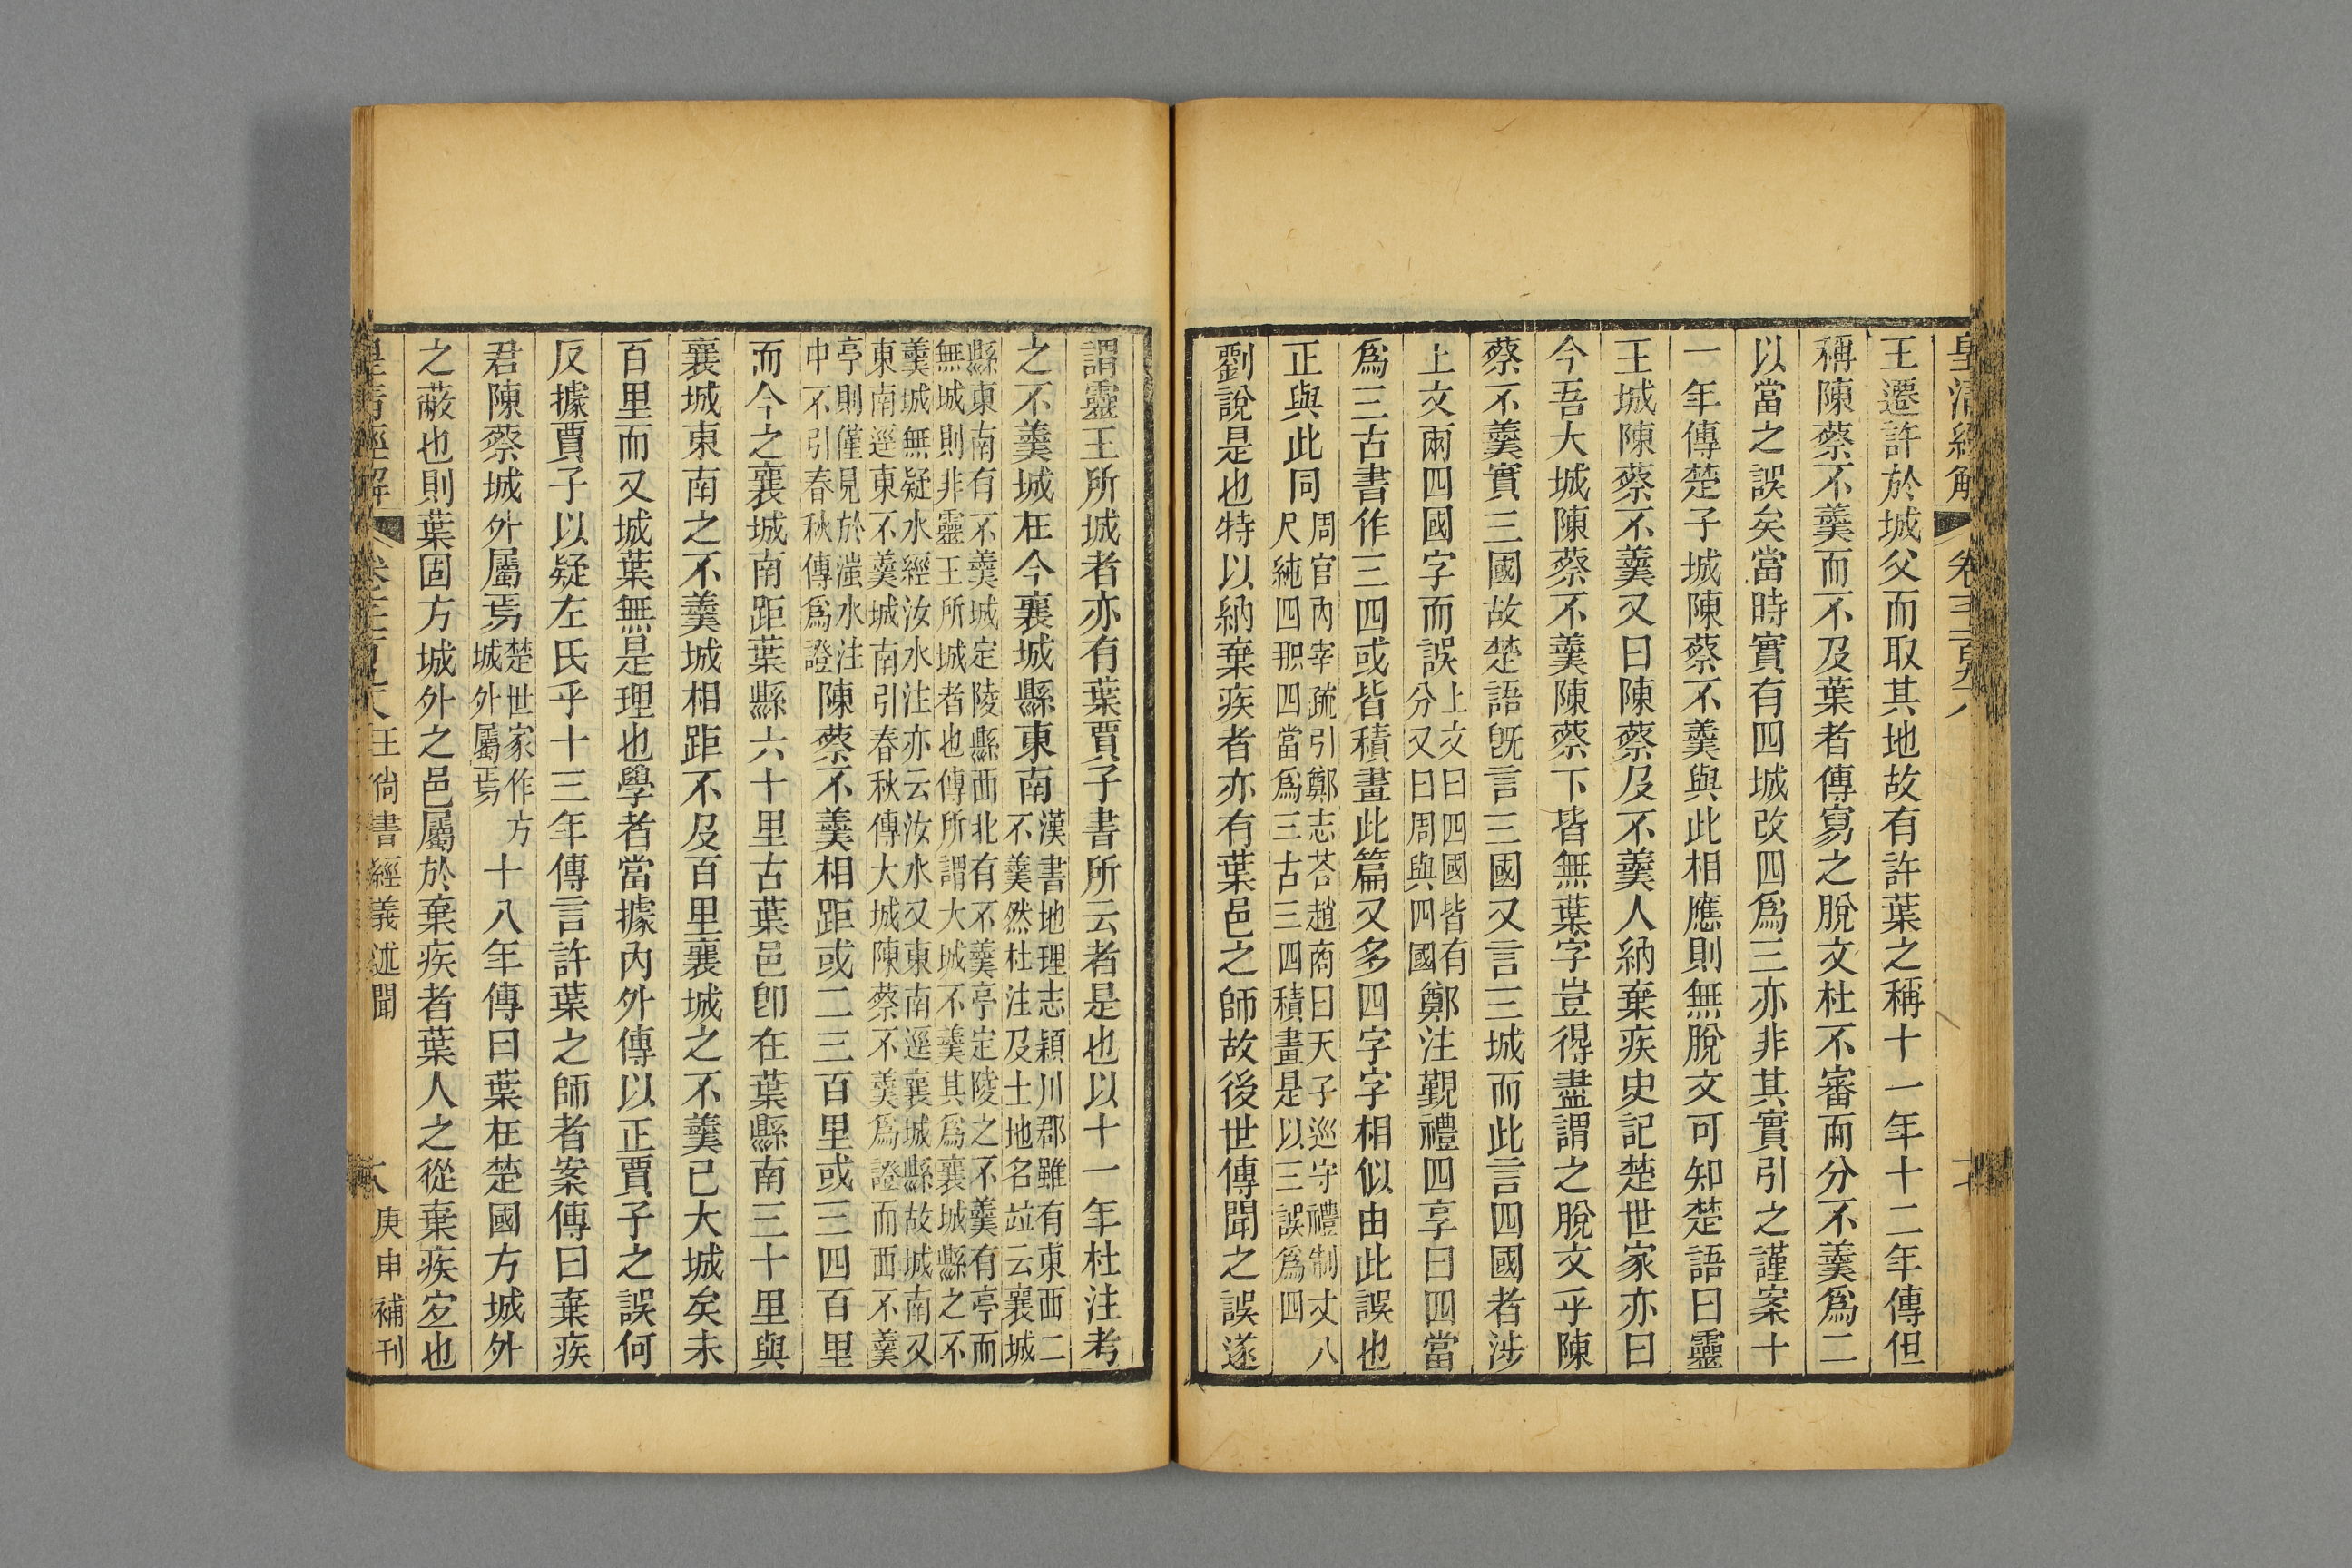 皇清經解 卷
王遷許於城父而取其地故有許葉之稱十一年十二年傳但
稱陳蔡不羹而不及葉者傳寫之脫文杜不審而分不羹爲二
以當之誤矣當時實有四城改四爲三亦非其實引之謹案十
一年傳楚子城陳蔡不羹與此相應則無脫文可知楚語曰靈
王城陳蔡不羹又曰陳蔡及不羹人納棄疾史記楚世家亦曰
今吾大城陳蔡不羹陳蔡下皆無葉字豈得盡謂之脫文乎陳
蔡不羹實三國故楚語旣言三國又言三城而此言四國者涉
上文兩四國字而誤
上文曰四國皆有
分又曰周與四國
鄭注覲禮四享曰四當
爲三古書作三四或皆積畫此篇又多四字字相似由此誤也
正與此同
周官內宰疏引鄭志荅趙商曰天子巡守禮制丈八
尺純四㣌四當爲三古三四積畫是以三誤爲四
劉說是也特以納棄疾者亦有葉邑之師故後世傳聞之誤遂
謂靈王所城者亦有葉賈子書所云者是也以十一年杜注考
之不羹城在今襄城縣東南
漢書地理志潁川郡雖有東西二
不羹然杜注及土地名竝云襄城
縣東南有不羹城定陵縣西北有不羹亭定陵之不羹有亭而
無城則非靈王所城者也傳所謂大城不羹其爲襄城縣之不
羹城無疑水經汝水注亦云汝水又東南逕襄城縣故城南又
東南逕東不羹城南引春秋傳大城陳蔡不羹爲證而西不羹
亭則僅見於滍水注
中不引春秋傳爲證
陳蔡不羹相距或二三百里或三四百里
而今之襄城南距葉縣六十里古葉邑卽在葉縣南三十里與
襄城東南之不羹城相距不及百里襄城之不羹已大城矣未
百里而又城葉無是理也學者當據內外傳以正賈子之誤何
反據賈子以疑左氏乎十三年傳言許葉之師者案傳曰棄疾
君陳蔡城外屬焉
楚世家作方
城外屬焉
十八年傳曰葉在楚國方城外
之蔽也則葉固方城外之邑屬於棄疾者葉人之從棄疾宐也
皇清經解 王尙書經義述聞 庚申補刊